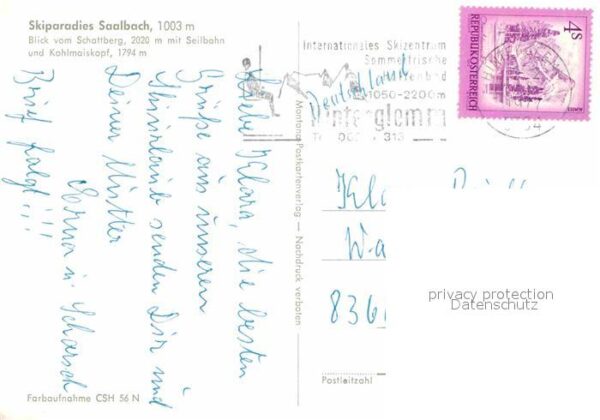 Skiparadies Saalbach, 1003 m
Blick vom Schattberg, 2020 m mit Seilbahn
und Kohlmaiskopf, 1794 m
Liebe Klara, die besten
Grüße aus unserem
Skiurlaub senden Dir und
Deiner Mutter
Erna u.
Brief folgt!!!
Farbaufnahme CSH 56 N
Montana-Postkartenverlag — Nachdruck verboten
Internationales Skizentrum
Sommerfrische
1050-2200m
Hinterglemm
Deutschland
4S
REPUBLIK ÖSTERREICH
836
Postleitzahl
privacy protection
Datenschutz